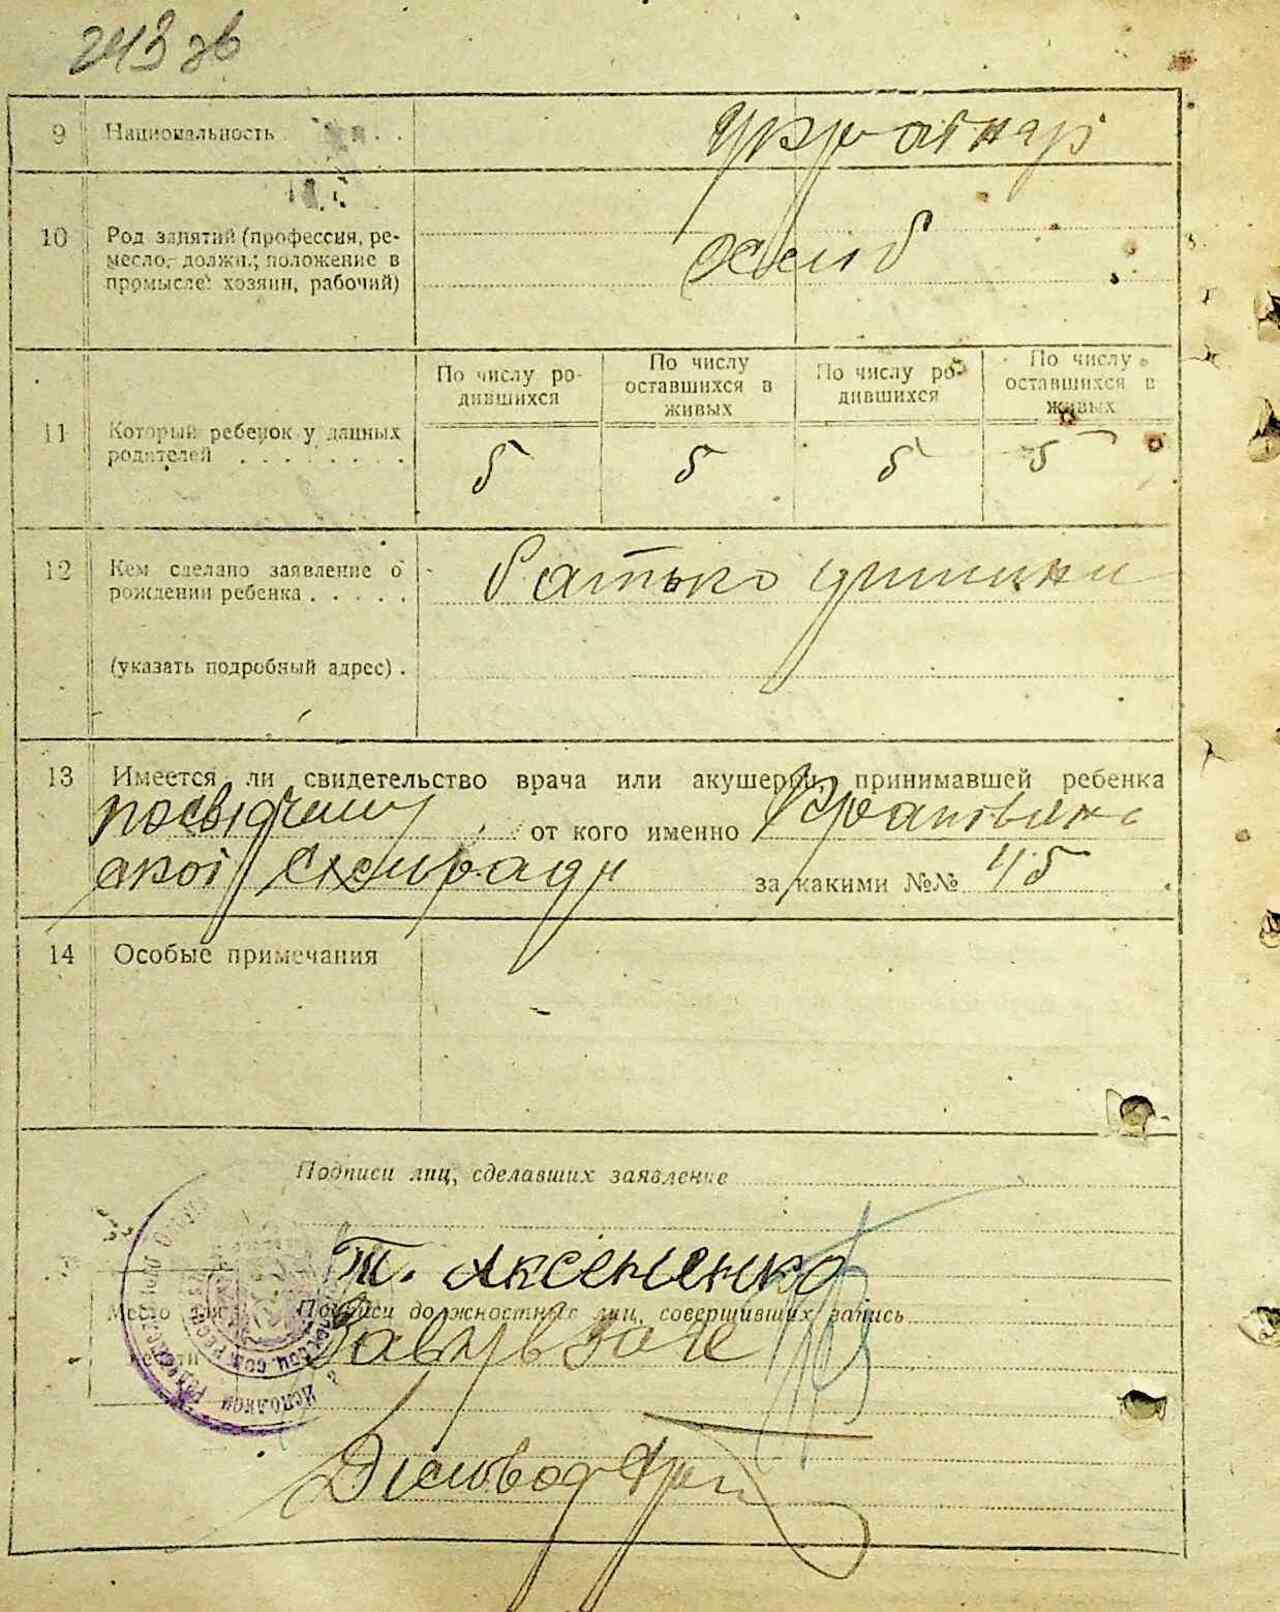 243 зв
9 Национальность
10 Род занятий (профессия, ре-
месло, должн.; положение в
промысле: хозяин, рабочий)
11 Который ребенок у данных
родителей
По числу ро-
дившихся
По числу
оставшихся в
живых
По числу ро-
дившихся
По числу
оставшихся в
живых
5 5 5 5
12 Кем сделано заявление о
рождении ребенка
батько дитини
(указать подробный адрес)
13 Имеется ли свидетельство врача или акушерки, принимавшей ребенка
посвідчення от кого именно
ської сельради за какими №№ 45
14 Особые примечания
-
Подписи лиц, сделавших заявление
Т. Аксененко
Место
Подписи должностных лиц, совершивших запись
Діловод